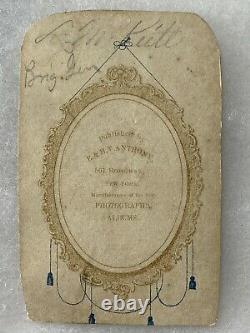 Brig Gen
Published by
E. & H.T. ANTHONY,
501 Broadway,
NEW-YORK.
Manufacturers of the best
PHOTOGRAPHIC
ALBUMS.